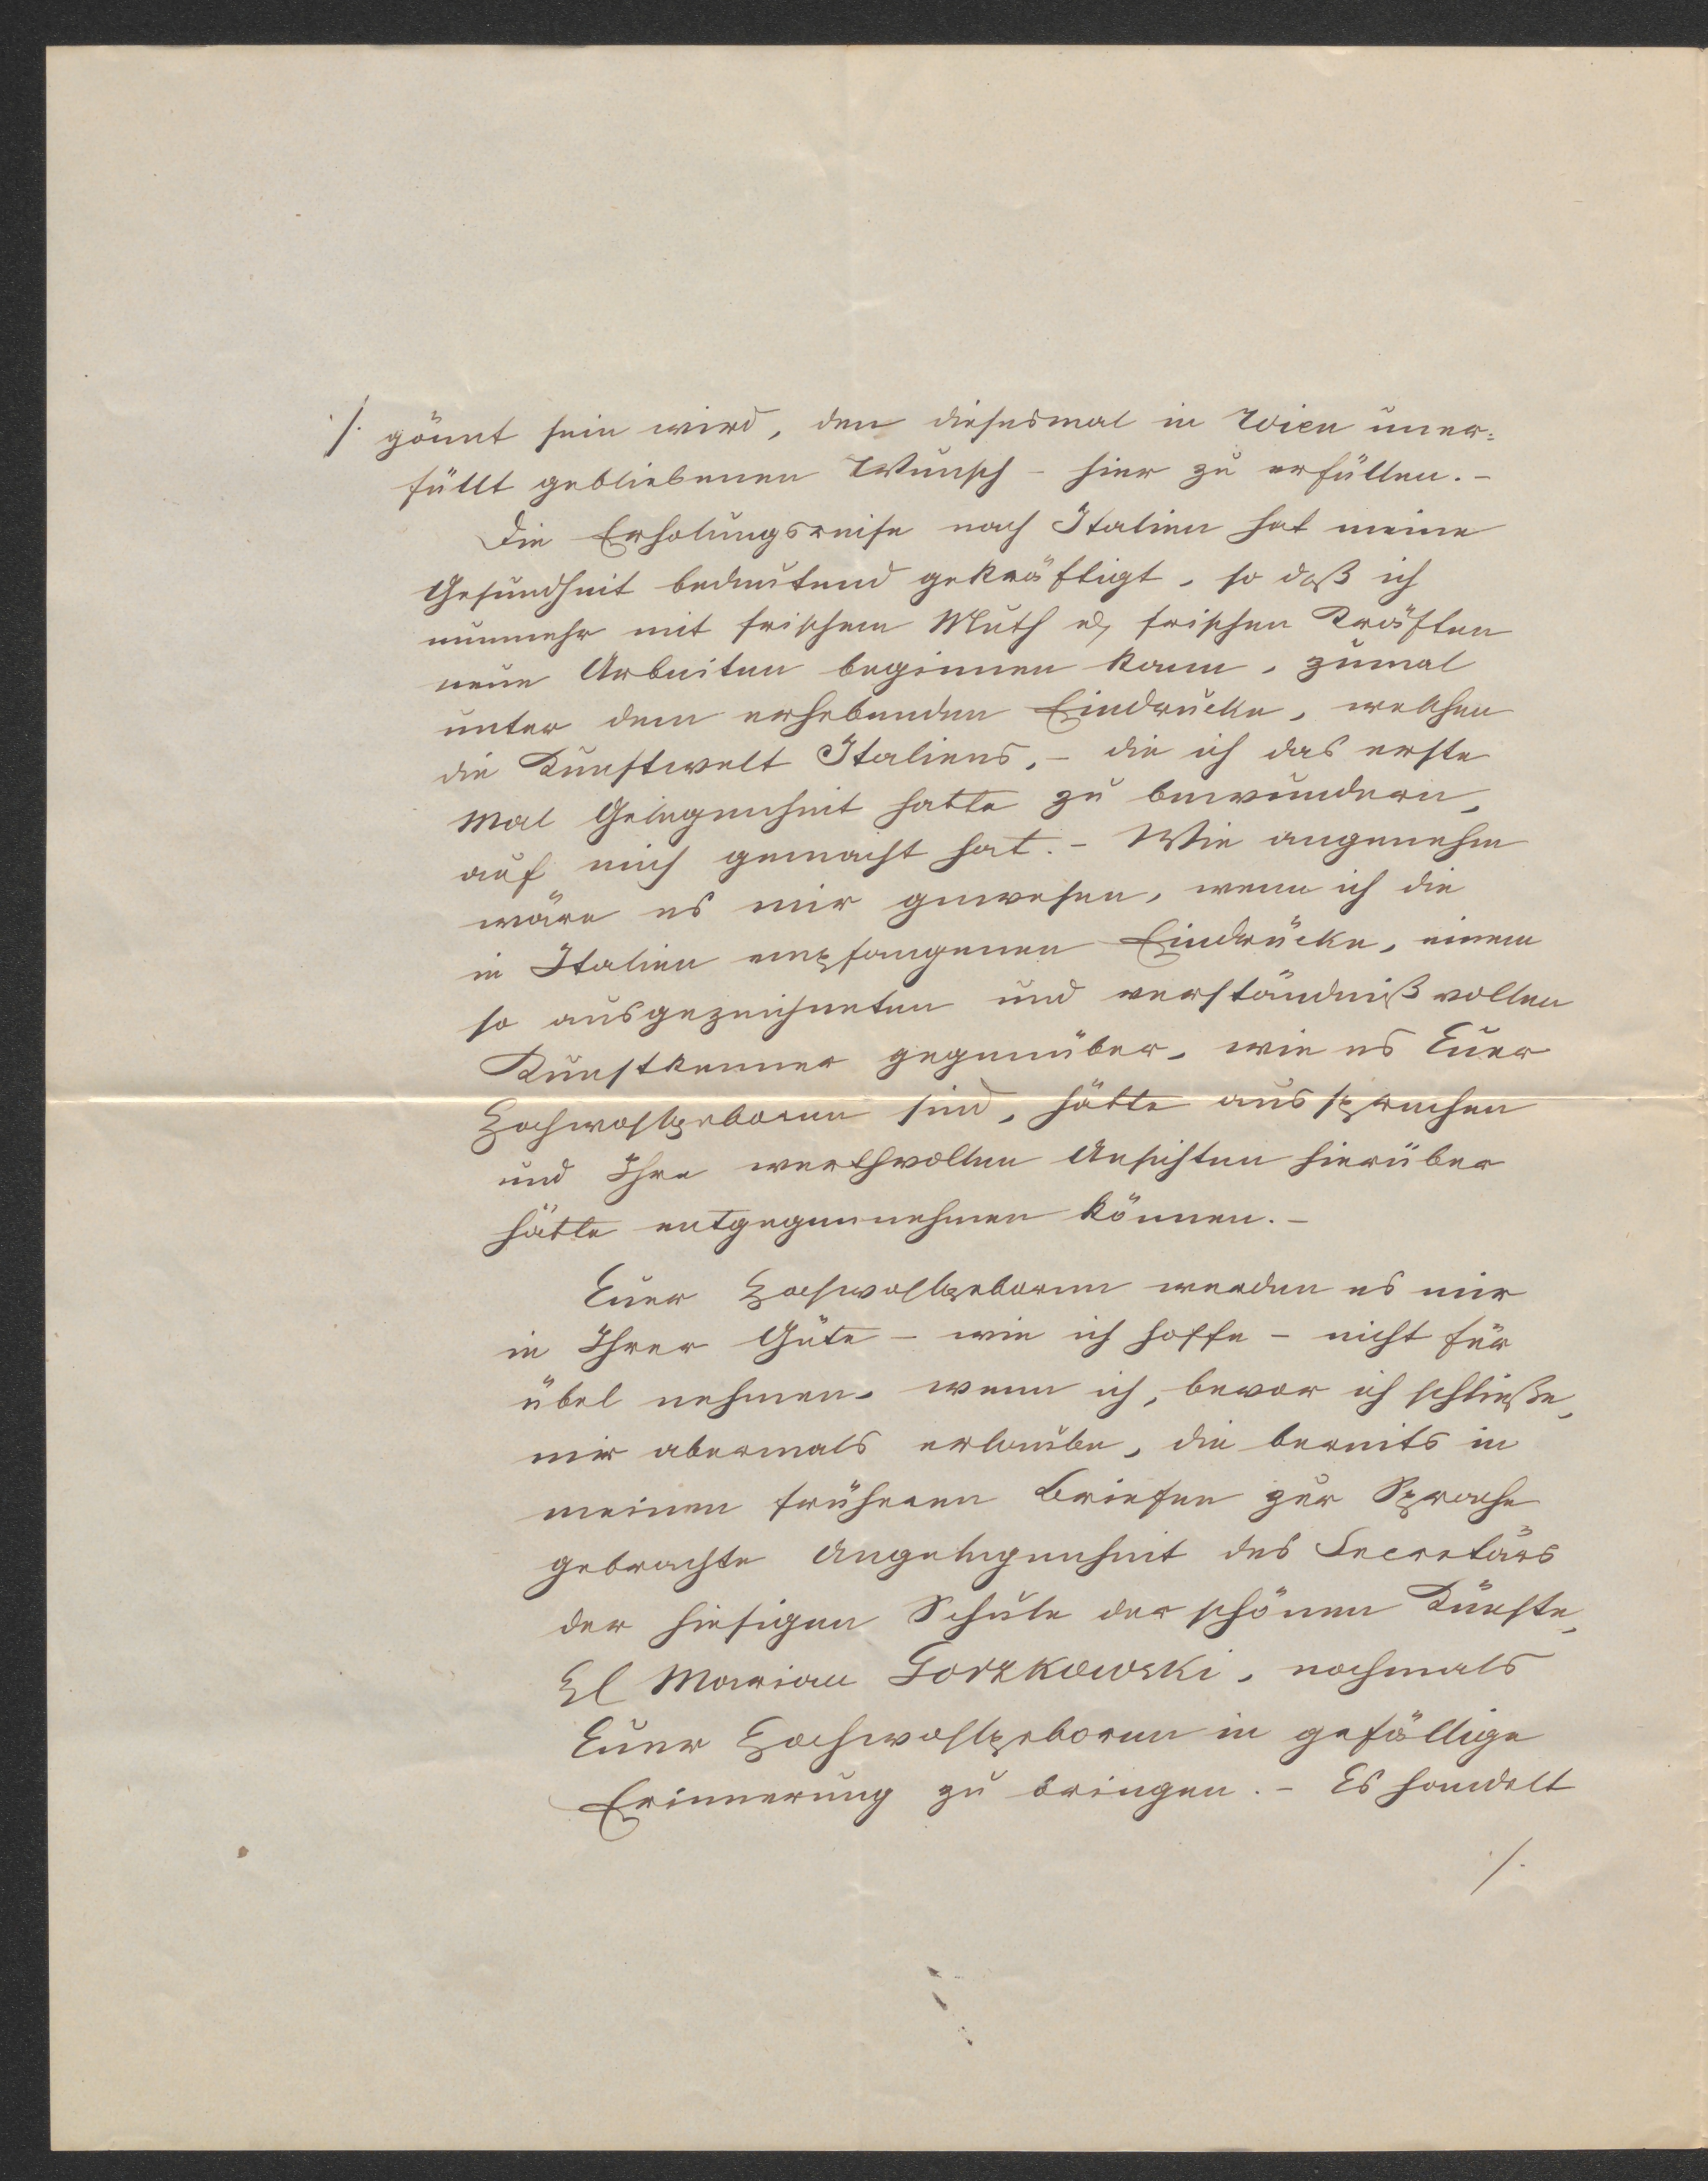 ./. gönnt sein wird, den diesesmal in Wien uner=
füllt gebliebenen Wunsch – hier zu erfüllen. –
Die Erholungsreise nach Italien hat meine
Gesundheit bedeutend gekräftigt, so daß ich
nunmehr mit frischem Muth u. frischen Kräften
neue Arbeiten beginnen kann, zumal
unter dem erhebenden Eindrucke, welchen
die Kunstwelt Italiens, – die ich das erste
Mal Gelegenheit hatte zu bewundern,
auf mich gemacht hat. – Wie angenehm
wäre es mir gewesen, wenn ich die
in Italien empfangenen Eindrücke, einem
so ausgezeichneten und verständnißvollen
Kunstkenner gegenüber, wie es Euer
Hochwohlgeboren sind, hätte aussprechen
und Ihre werthvollen Ansichten hierüber
hätte entgegennehmen können. –
Euer Hochwohlgeboren werden es mir
in Ihrer Güte – wie ich hoffe – nicht für
übel nehmen, wenn ich, bevor ich schließe,
mir abermals erlaube, die bereits in
meinen früheren Briefen zur Sprache
gebrachte Angelegenheit des Secretärs
der hiesigen Schule der schönen Künste,
H Marian Gorzkowski, nochmals
Euer Hochwohlgeboren in gefällige
Erinnerung zu bringen. – Es handelt
./.